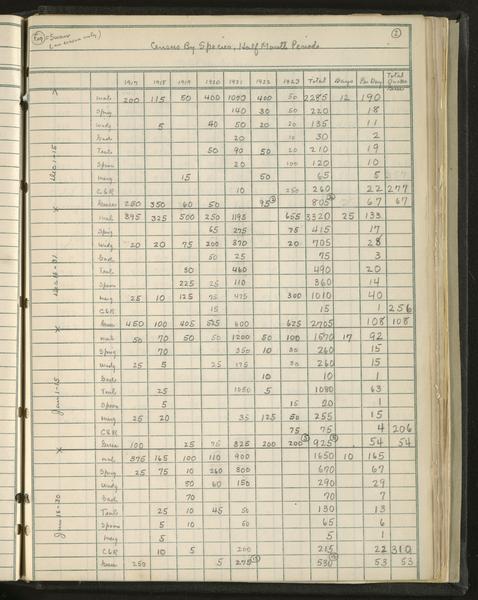 2
Census By Species, Half Month Periods
1917 1918 1919 1920 1921 1922 1923 Total Days Per Day Total Ducks Geese
Dec 1-15
mal 200 115 50 400 1070 400 50 2285 12 190
Sprig 140 30 50 220 18
Widg 5 40 50 20 20 135 11
Gad 20 10 30 2
Teal 50 90 50 20 210 19
Spoon 20 100 120 10
15 50 65 5
C&R 10 250 260 22 277
Geese 250 350 60 50 95 805 67 67
Dec 16-31
mal 395 325 500 250 1195 655 3320 25 133
Sprig 65 275 75 415 17
Widg 20 20 75 200 370 20 705 28
Gad 50 25 75 3
Teal 30 460 490 20
Spoon 225 25 110 360 14
25 10 125 75 475 300 1010 40
C&R 15 15 1 256
Geese 450 100 405 525 600 625 2705 108 108
Jan 1-15
mal 50 70 50 50 1200 50 100 1570 17 92
Sprig 70 350 10 30 260 15
Widg 25 5 25 175 30 260 15
Gad 10 10 1
Teal 25 1050 5 1080 63
Spoon 5 15 20 1
25 20 35 125 50 255 15
C&R 75 75 4 206
Geese 100 25 75 325 200 200 925 54 54
Jan 16-20
mal 375 165 100 110 900 1650 10 165
Sprig 25 75 10 260 300 670 67
Widg 30 60 150 290 29
Gad 70 70 7
Teal 25 10 45 50 130 13
Spoon 5 10 50 65 6
5 5 1
C&R 10 5 200 215 22 310
Geese 250 5 275 530 53 53